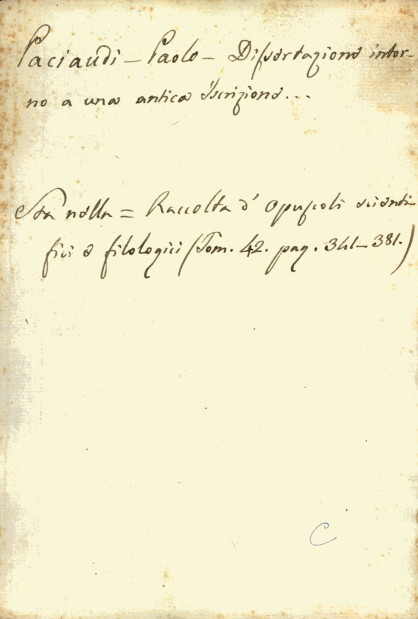 Paciaudi - Paolo - Dissertazione intor-
no a una antica Iscrizione...
Sta nella = Raccolta d' Opuscoli scienti-
fici e filologici (Tom. 42. pag. 341-381.)
C